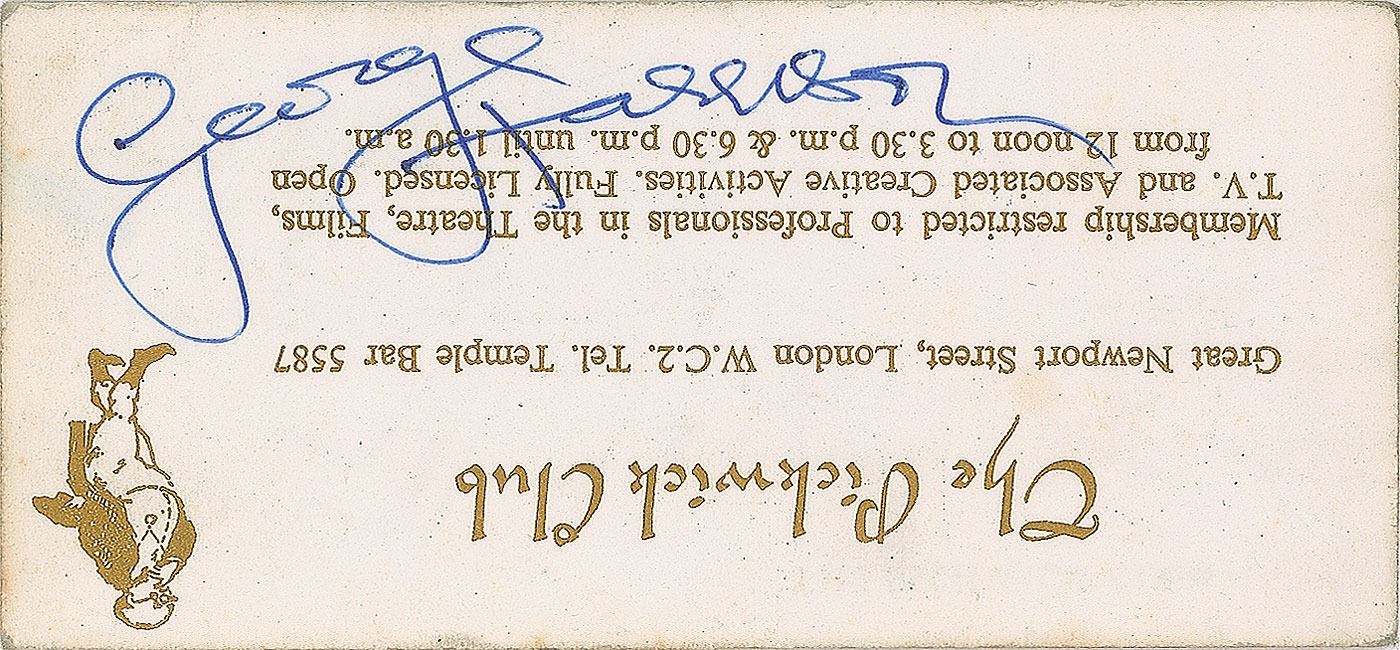 The Pickwick Club
Great Newport Street, London W.C.2. Tel. Temple Bar 5587
Membership restricted to Professionals in the Theatre, Films,
T.V. and Associated Creative Activities. Fully Licensed. Open
from 12 noon to 3.30 p.m. & 6.30 p.m. until 1.30 a.m.
George Harrison